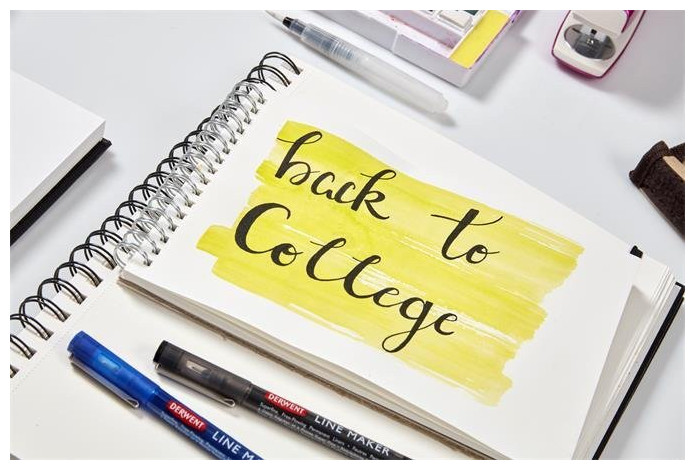 back to
College
DERWENT LINE M
DERWENT LINE MAKER